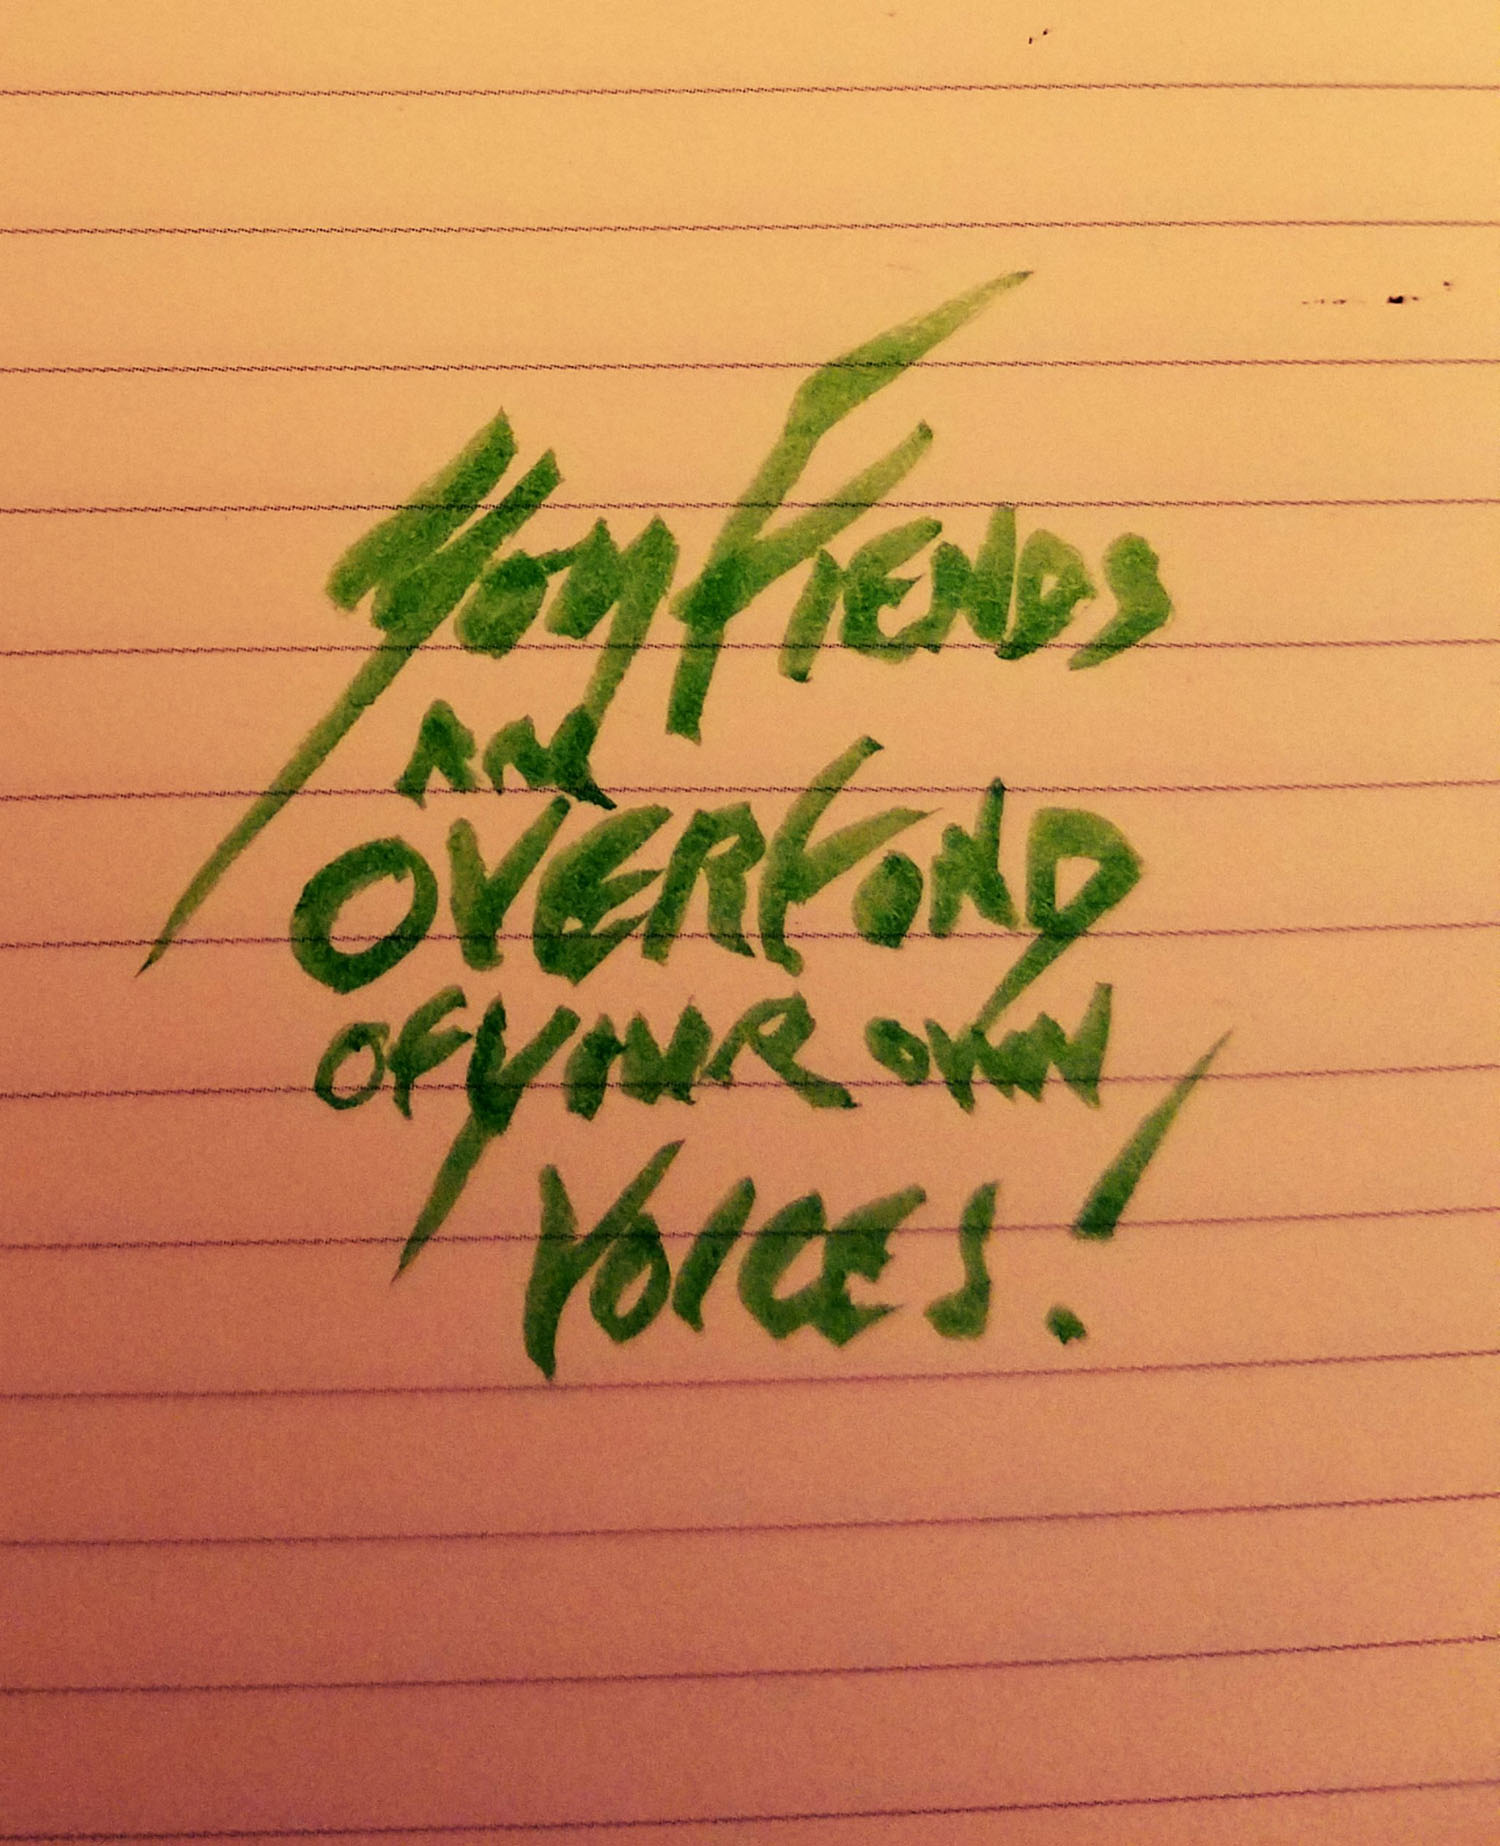 YOU FIENDS
ARE
OVERFOND
OF YOUR OWN
VOICES!